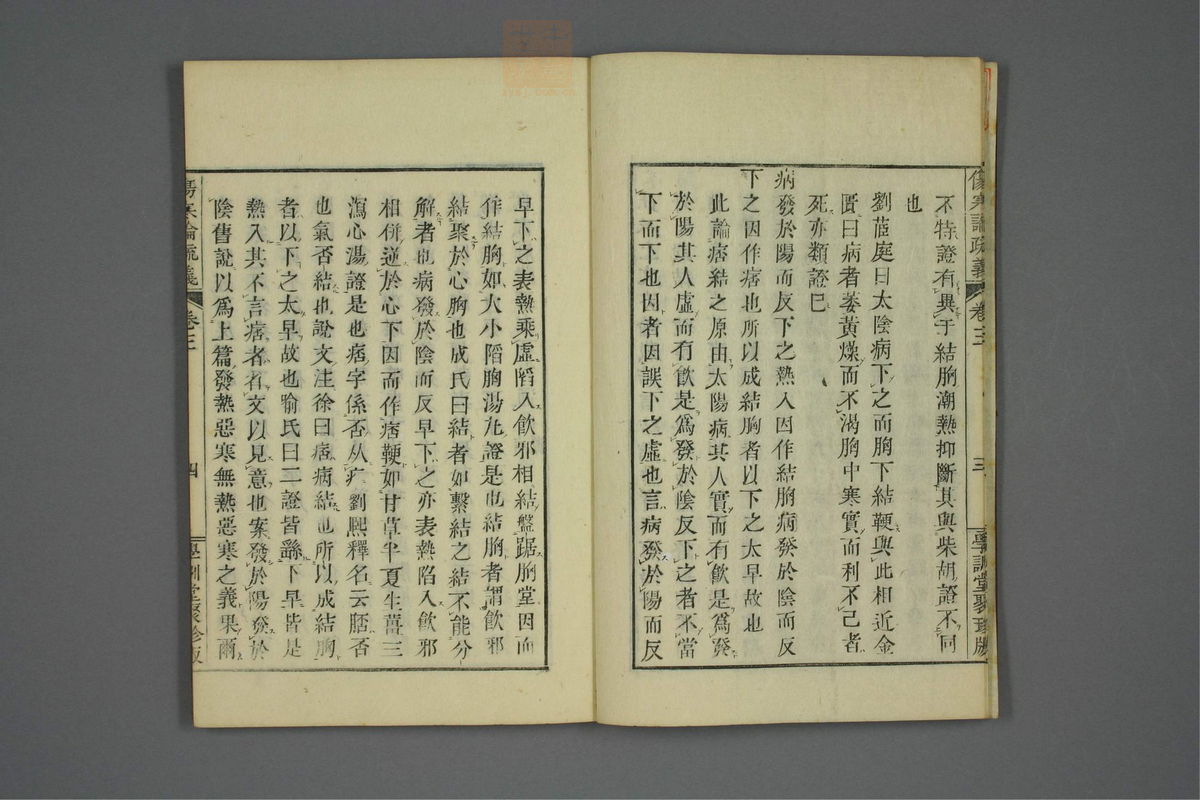 傷寒論疏義 卷三 三 學訓堂聚珍版
不特證有異于結胸潮熱抑斷其與柴胡證不同
也
劉茝庭曰太陰病下之而胸下結鞕與此相近金
匱曰病者萎黃燥而不渴胸中寒實而利不已者
死亦類證巳
病發於陽而反下之熱入因作結胸病發於陰而反
下之因作痞也所以成結胸者以下之太早故也
此論痞結之原由太陽病其人實而有飮是爲發
於陽其人虛而有飮是爲發於陰反下之者不當
下而下也因者因誤下之虛也言病發於陽而反
早下之表熱乘虛陷入飮邪相結盤踞胸堂因而
作結胸如大小陷胸湯丸證是也結胸者謂飮邪
結聚於心胸也成氏曰結者如繫結之結不能分
解者也病發於陰而反早下之亦表熱陷入飮邪
相併逆於心下因而作痞鞕如甘草半夏生薑三
瀉心湯證是也痞字係否从疒劉熙釋名云痞否
也氣否結也說文注徐曰痞病結也所以成結胸
者以下之太早故也喻氏曰二證皆繇下早皆是
熱入其不言痞者省文以見意也案發於陽發於
陰舊說以爲上篇發熱惡寒無熱惡寒之義果爾
傷寒論疏義 卷三 四 學訓堂聚珍版